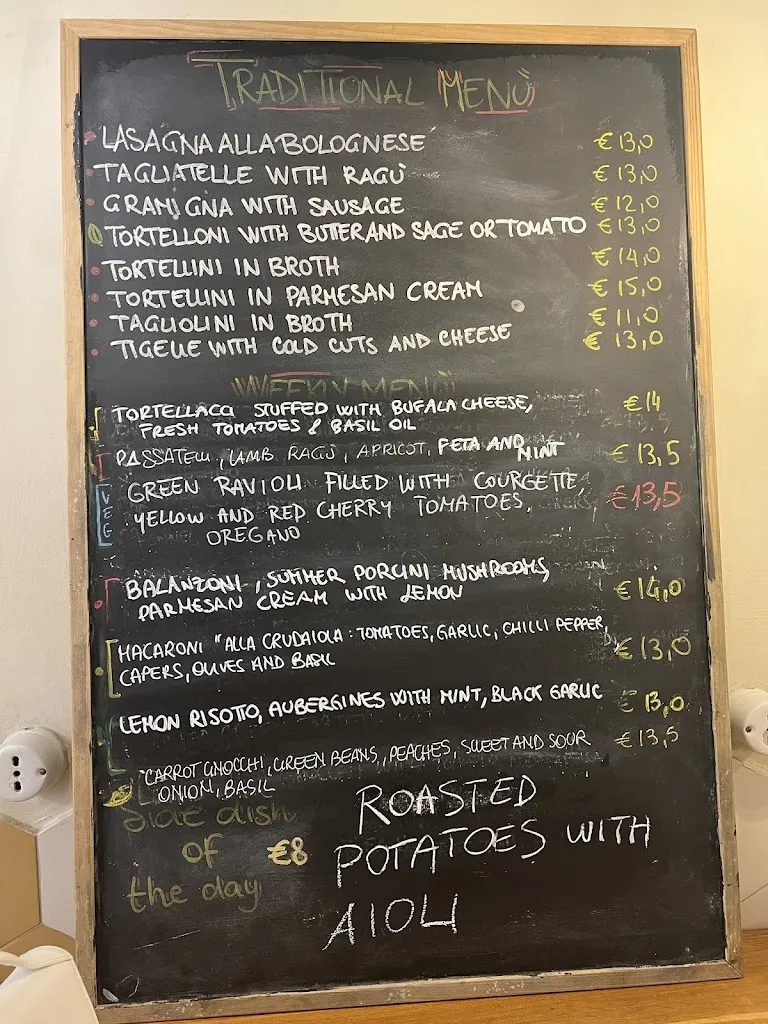 TRADITIONAL MENÙ
LASAGNA ALLA BOLOGNESE € 13,0
TAGLIATELLE WITH RAGÙ € 13,0
GRAMIGNA WITH SAUSAGE € 12,0
TORTELLONI WITH BUTTER AND SAGE OR TOMATO € 13,0
TORTELLINI IN BROTH € 14,0
TORTELLINI IN PARMESAN CREAM € 15,0
TAGLIOLINI IN BROTH € 11,0
TIGELLE WITH COLD CUTS AND CHEESE € 13,0
WEEKLY MENÙ
TORTELLACCI STUFFED WITH BUFALA CHEESE, € 14
FRESH TOMATOES & BASIL OIL
PASSATELLI, LAMB RAGÙ, APRICOT, FETA AND MINT € 13,5
VEG
GREEN RAVIOLI FILLED WITH COURGETTE, € 13,5
YELLOW AND RED CHERRY TOMATOES,
OREGANO
BALANZONI, SUMMER PORCINI MUSHROOMS, € 14,0
PARMESAN CREAM WITH LEMON
MACARONI "ALLA CRUDAIOLA: TOMATOES, GARLIC, CHILLI PEPPER, € 13,0
CAPERS, OLIVES AND BASIL
LEMON RISOTTO, AUBERGINES WITH MINT, BLACK GARLIC € 13,0
CARROT GNOCCHI, GREEN BEANS, PEACHES, SWEET AND SOUR € 13,5
ONION, BASIL
Side dish
of €8
the day
ROASTED
POTATOES WITH
AIOLI